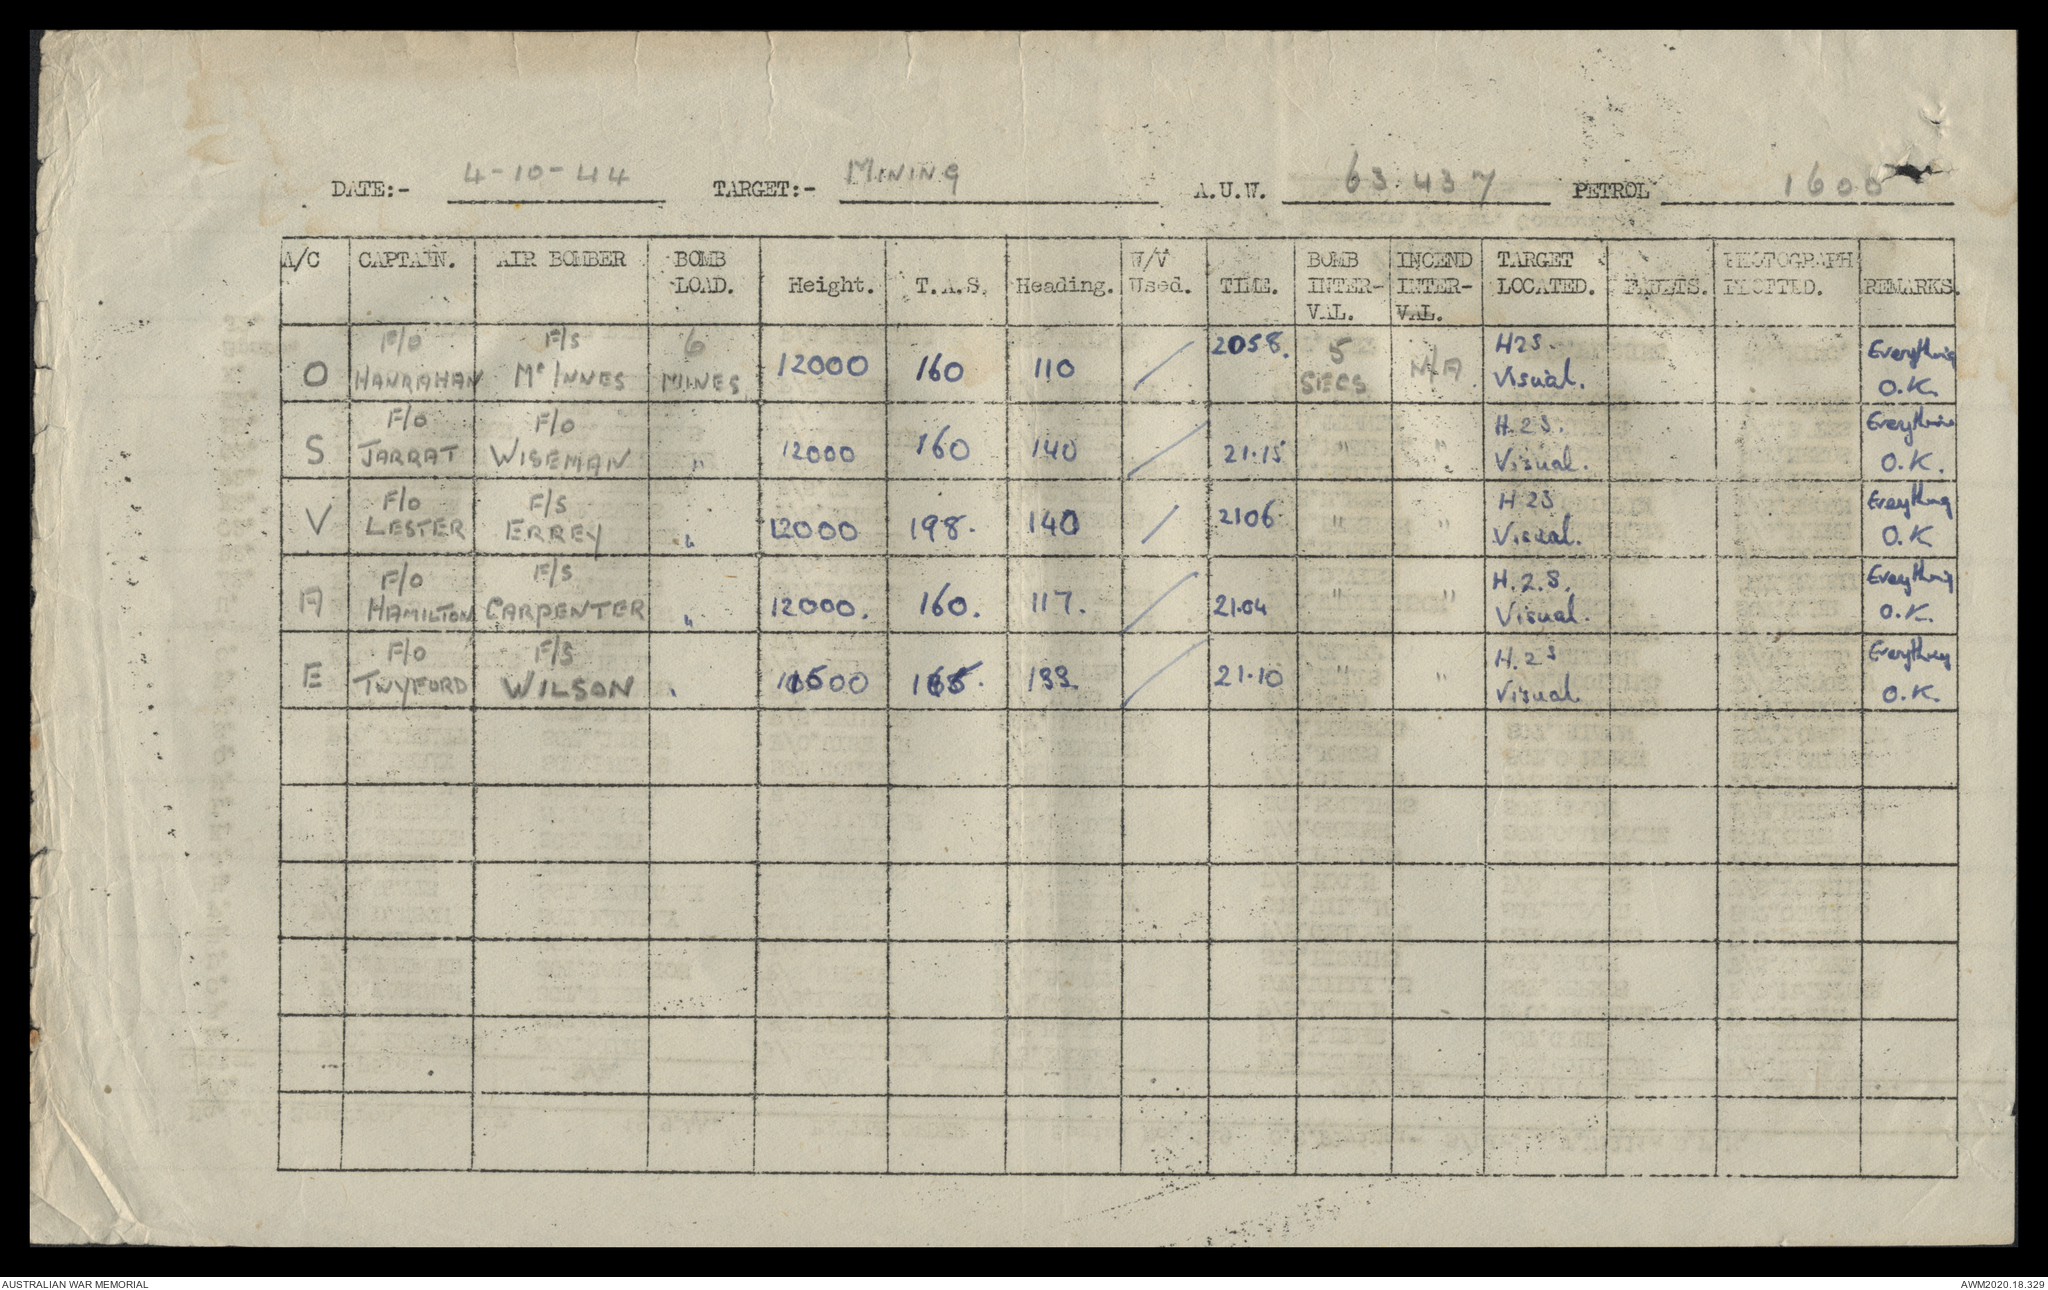 DATE:- 4-10-44 TARGET:- MINING A.U.W. 63.437 PETROL 1600
A/C CAPTAIN. AIR BOMBER BOMB LOAD. Height. T.A.S. Heading. W/V Used. TIME. BOMB INTER-VAL. INCEND INTER-VAL. TARGET LOCATED. FAULTS. PHOTOGRAPH PLOTTED. REMARKS.
O F/O HANRAHAN F/S McINNES 6 MINES 12000 160 110 / 2058. 5 SECS N/A H2S. Visual. Everything O.K.
S F/O JARRAT F/O WISEMAN " 12000 160 140 / 21.15 " " H.2S. Visual. Everything O.K.
V F/O LESTER F/S ERREY " 12000 198. 140 / 2106 " " H2S Visual. Everything O.K
A F/O HAMILTON F/S CARPENTER " 12000. 160. 117. / 21.04 " " H.2.S. Visual. Everything O.K.
E F/O TWYFORD F/S WILSON " 165. / 21.10 " " H.2S Visual Everything O.K.
AUSTRALIAN WAR MEMORIAL AWM2020.18.329